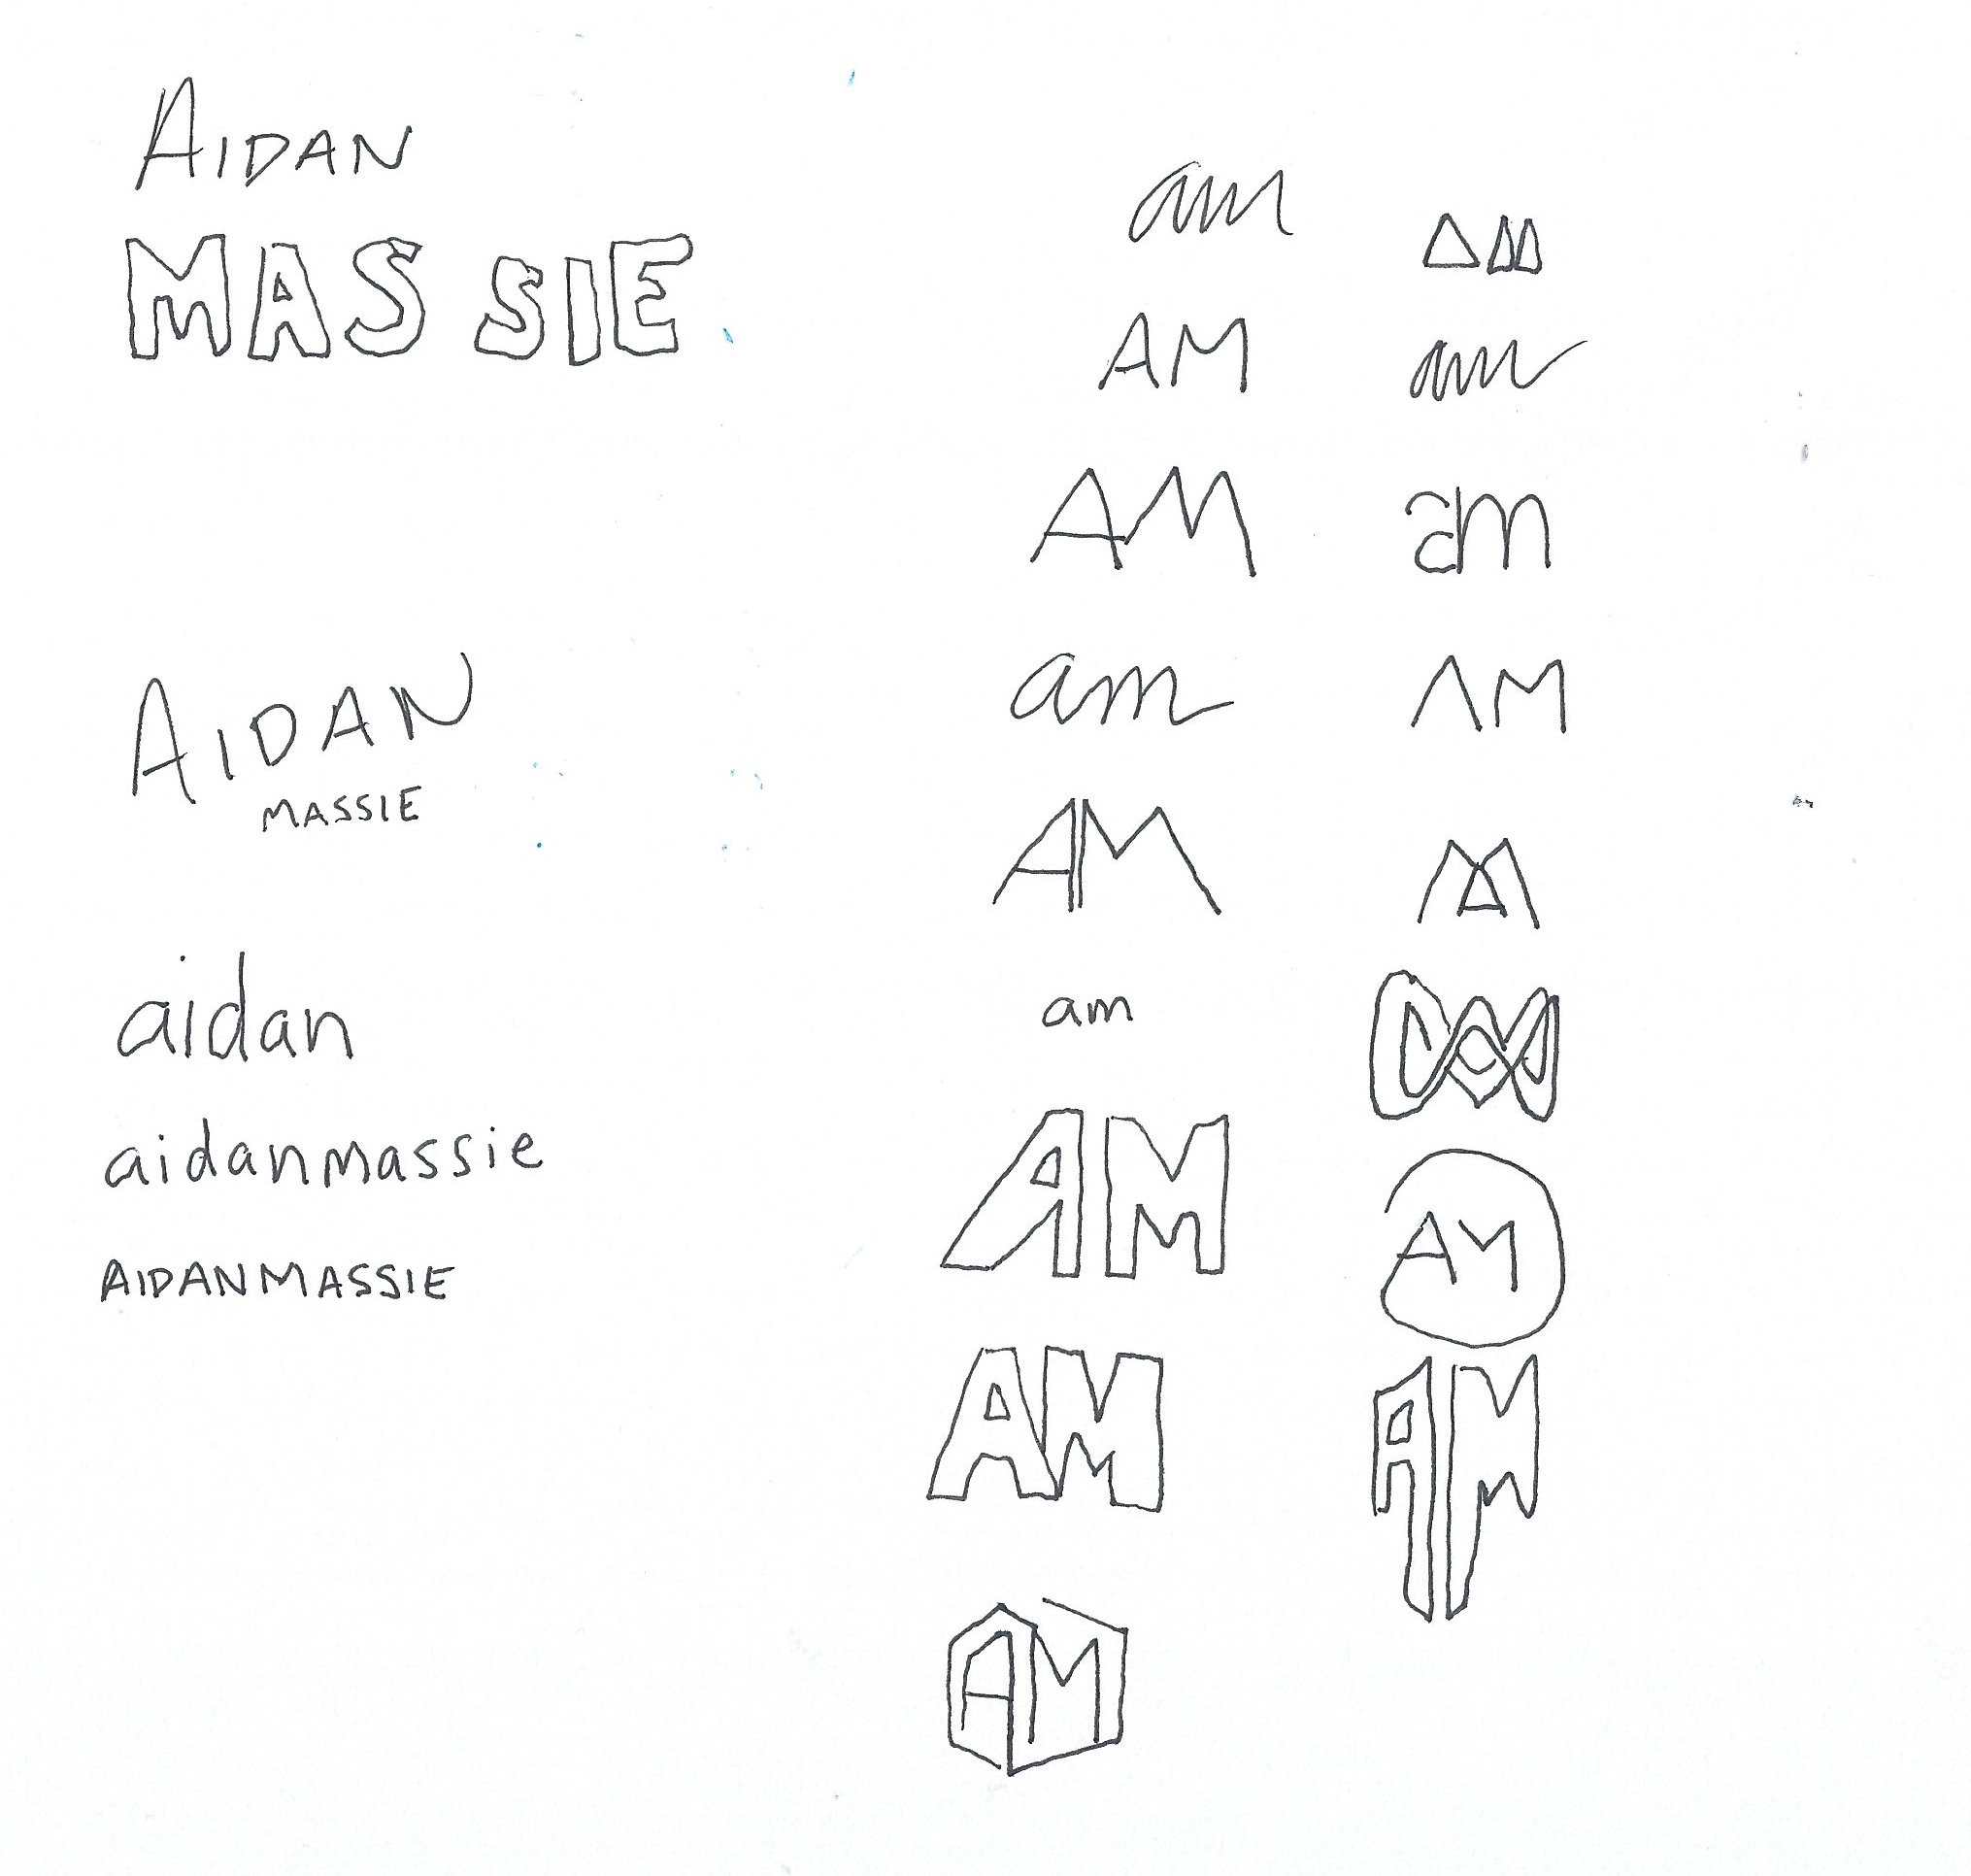 AIDAN
MASSIE
AIDAN
MASSIE
aidan
aidanmassie
AIDANMASSIE
am
AM
AM
am
AM
am
AM
AM
AM
am
am
AM
AM
AM